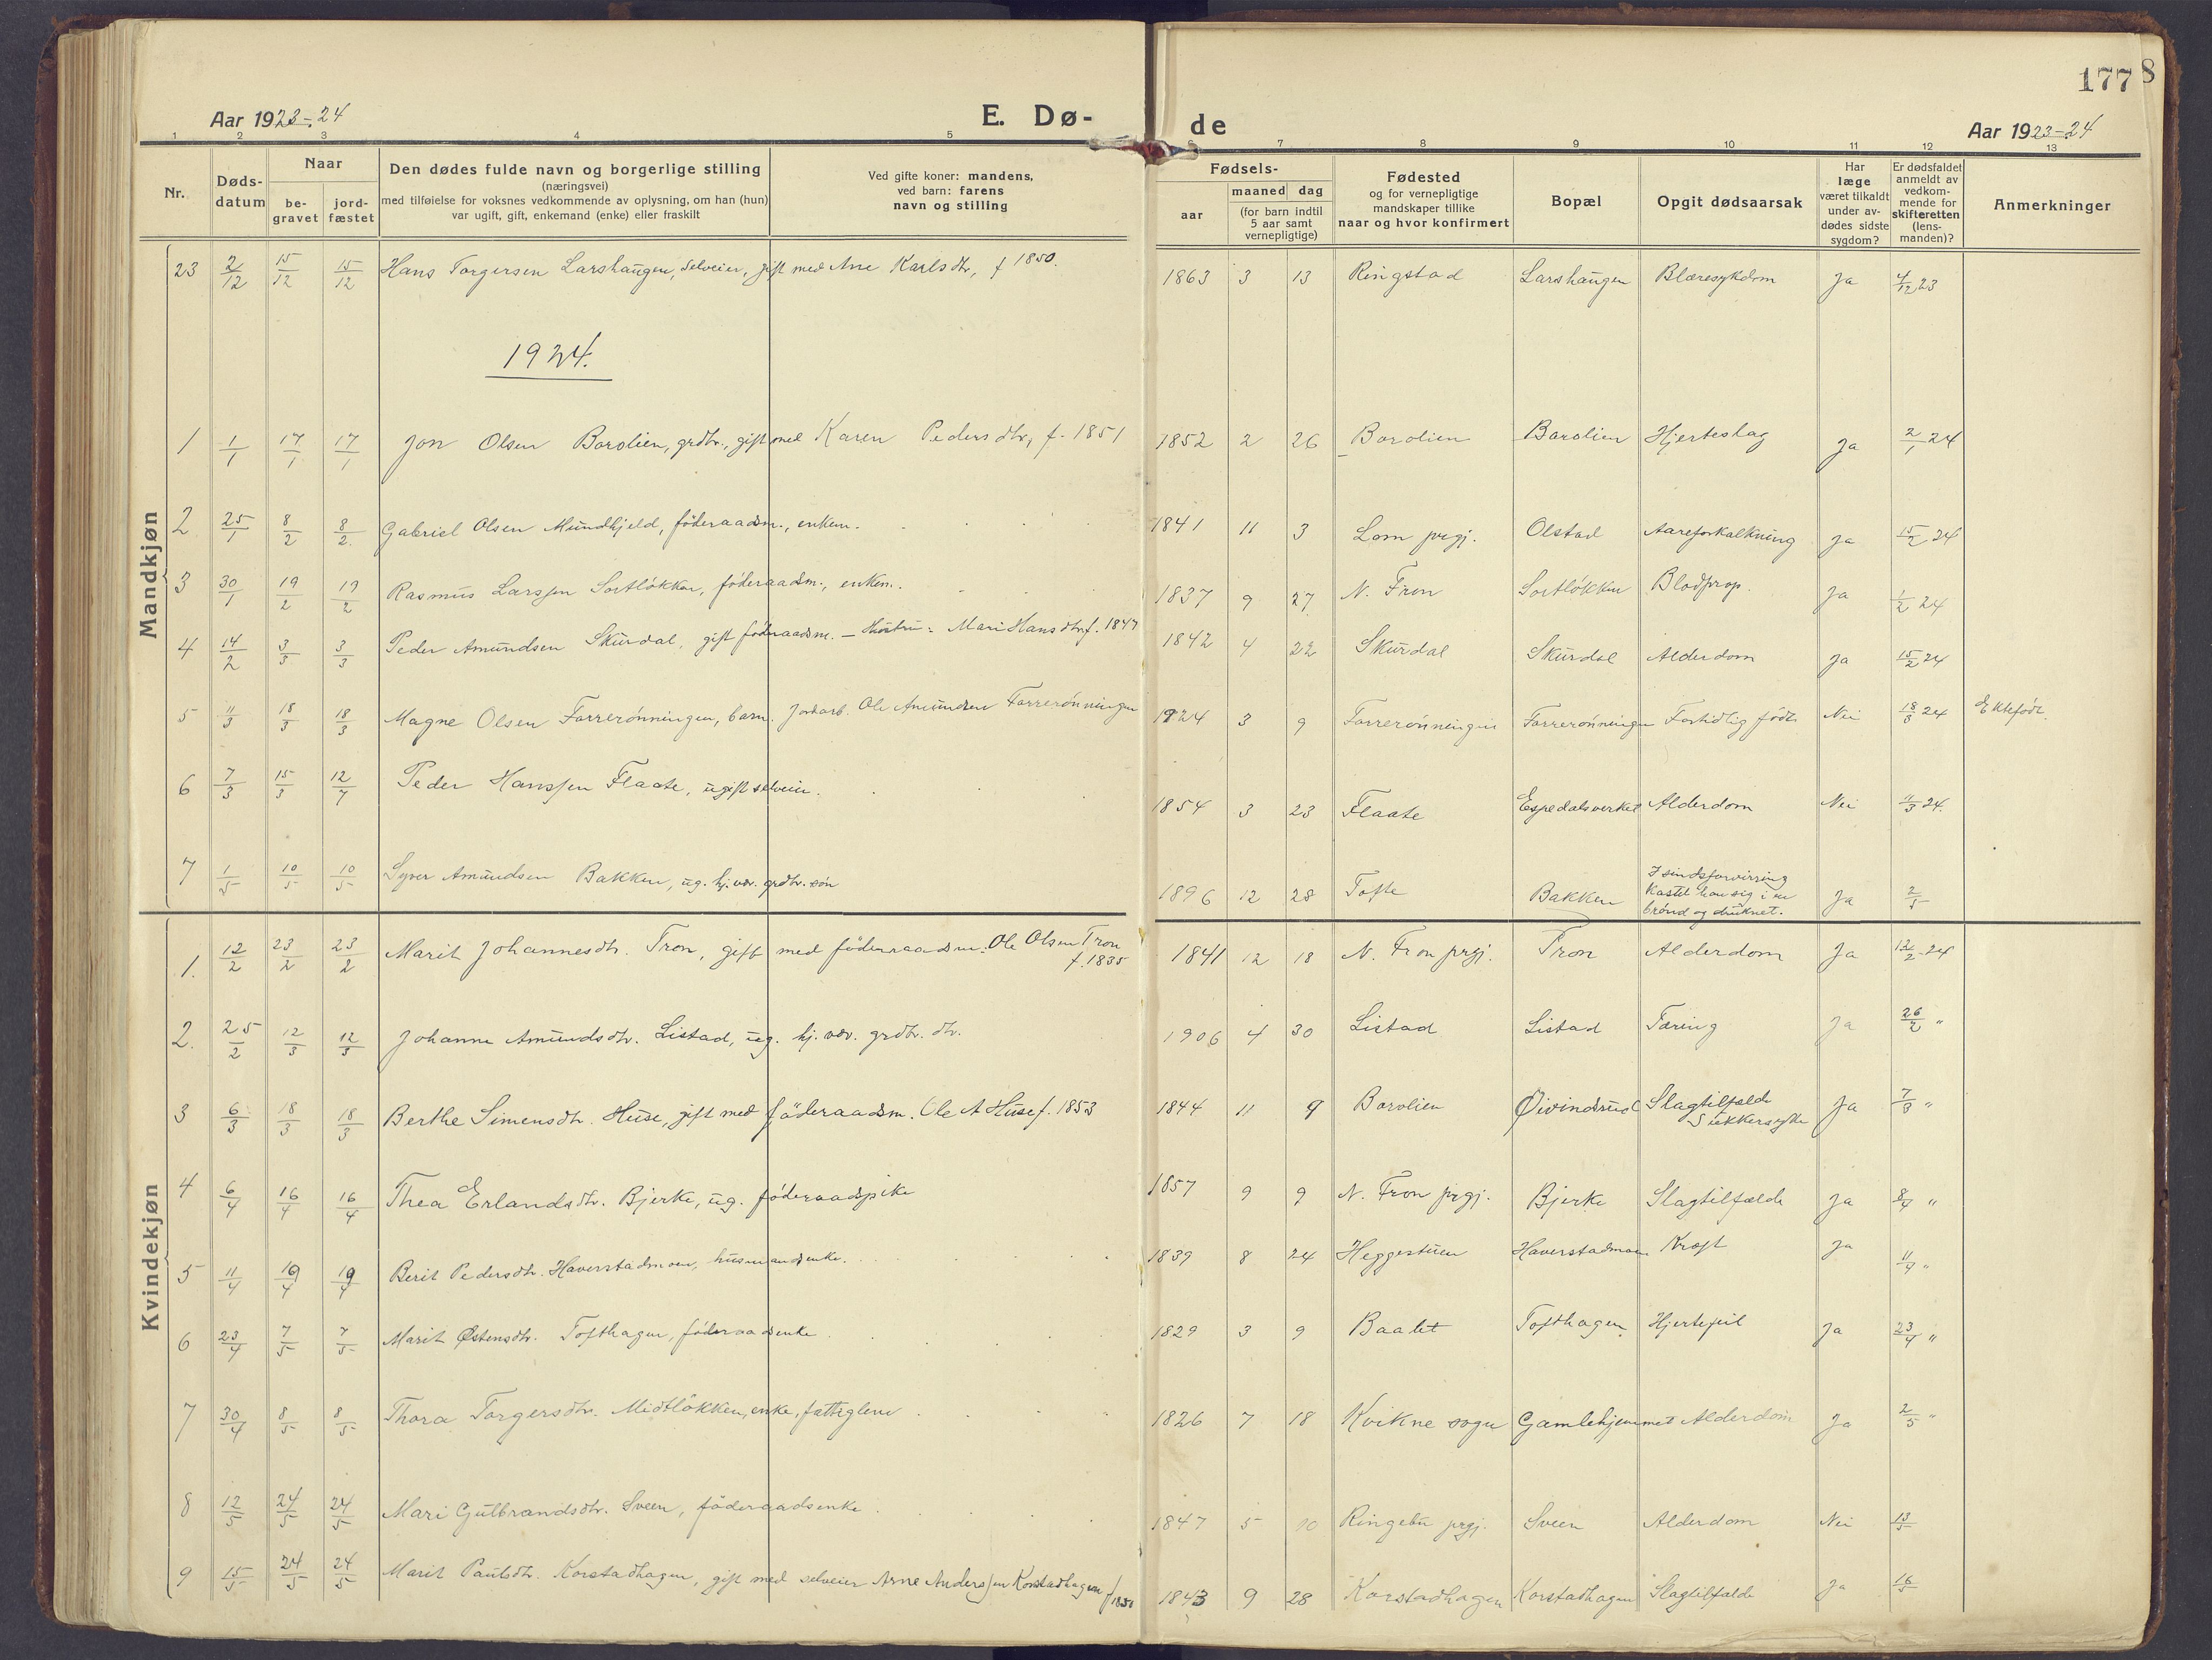 177 8
Aar 1923-24 E. Dø- de Aar 1923-24
1 2 3 4 5 7 8 9 10 11 12 13
Nr.
Døds-
datum
Naar
be-
gravet
jord-
fæstet
Den dødes fulde navn og borgerlige stilling
(næringsvei)
med tilføielse for voksnes vedkommende av oplysning, om han (hun)
var ugift, gift, enkemand (enke) eller fraskilt
Ved gifte koner: mandens,
ved barn: farens
navn og stilling
Fødsels-
aar
maaned dag
(for barn indtil
5 aar samt
vernepligtige)
Fødested
og for vernepligtige
mandskaper tillike
naar og hvor konfirmert
Bopæl
Opgit dødsaarsak
Har
læge
været tilkaldt
under av-
dødes sidste
sygdom?
Er dødsfaldet
anmeldt av
vedkom-
mende for
skifteretten
(lens-
manden)?
Anmerkninger
Mandkjøn
23 2/12 15/12 15/12 Hans Torgersen Larshaugen, selveier, gift med Ane Karlsdtr, f 1850. 1863 3 13 Ringstad Larshaugen Blæresykdom Ja 4/12 23
1924.
1 1/1 17/1 17/1 Jon Olsen Barolien, grdbr., gift med Karen Pedersdtr, f. 1851 1852 2 26 Barolien Barolien Hjerteslag Ja 2/1 24
2 25/1 8/2 8/2. Gabriel Olsen Mundhjeld, føderaadsm., enkem. 1841 11 3 Lom prgj. Olstad Aareforkalkning Ja 15/2 24
3 30/1 19/2 19/2 Rasmus Larssen Sortløkken, føderaadsm., enkem. 1837 9 27 N. Fron Sortløkken Blodprop. Ja 1/2 24
4 14/2 3/3 3/3 Peder Amundsen Skurdal, gift føderaadsm. – Hustru: Mari Hansdtr f. 1847 1842 4 22 Skurdal Skurdal Alderdom Ja 15/2 24
5 11/3 18/3 18/3 Magne Olsen Forrerønningen, barn. Jordarb. Ole Amundsen Forrerønningen 1924 3 9 Forrerønningen Forrerønningen Fortidlig født Nei 18/3 24 Ektefødt.
6 7/3 15/3 12/7 Peder Hanssen Flaate, ugift selveier. 1854 3 23 Flaate Espedalsverket Alderdom Nei 11/3 24.
7 1/5 10/5 10/5 Syver Amundsen Bakken, ug. hj.vær. grdbr. søn 1896 12 28 Tofte Bakken I sindsforvirring
kastet han sig i en
brønd og druknet. Ja 2/5
Kvindekjøn
1. 12/2 23/2 23/2 Marit Johannesdtr. Tron, gift med føderaadsm. Ole Olsen Tron
f. 1835 1841 12 18 N. Fron prgj. Tron Alderdom Ja 12/2 24
2. 25/2 12/3 12/3 Johanne Amundsdtr. Listad, ug. hj. vær. grdbr. dtr. 1906 4 30 Listad Listad Tæring Ja 26/2 "
3 6/3 18/3 18/3 Berthe Simensdtr. Huse, gift med føderaadsm. Ole A Huse f. 1853 1844 11 9 Barolien Øivindsrud Slagtilfælde
Sukkersyke Ja 7/3 "
4 6/4 16/4 16/4 Thea Erlandsdtr. Bjerke, ug. føderaadspike 1857 9 9 N. Fron prgj. Bjerke Slagtilfælde Ja 8/4 "
5 11/4 19/4 19/4 Berit Pedersdtr. Haverstadmoen, husmandsenke. 1839 8 24 Heggestuen Haverstadmoen Kræft Ja 11/4 "
6 23/4 7/5 7/5 Marit Østensdtr. Tofthagen, føderaadsenke 1829 3 9 Baalet Tofthagen Hjertefeil Ja 23/4 "
7 30/4 8/5 8/5 Thora Torgersdtr. Midtløkken, enke, fattiglem 1826 7 18 Kvikne sogn Gamlehjemmet Alderdom Ja 2/5 "
8 12/5 24/5 24/5 Mari Gulbrandsdtr. Sveen, føderaadsenke 1847 5 10 Ringebu prgj. Sveen Alderdom Nei 13/5
9 15/5 24/5 24/5 Marit Paulsdtr. Korstadhagen, gift med selveier Arne Anderssen Korstadhagen f 1850 1843 9 28 Korstadhagen Korstadhagen Slagtilfælde Ja 16/5